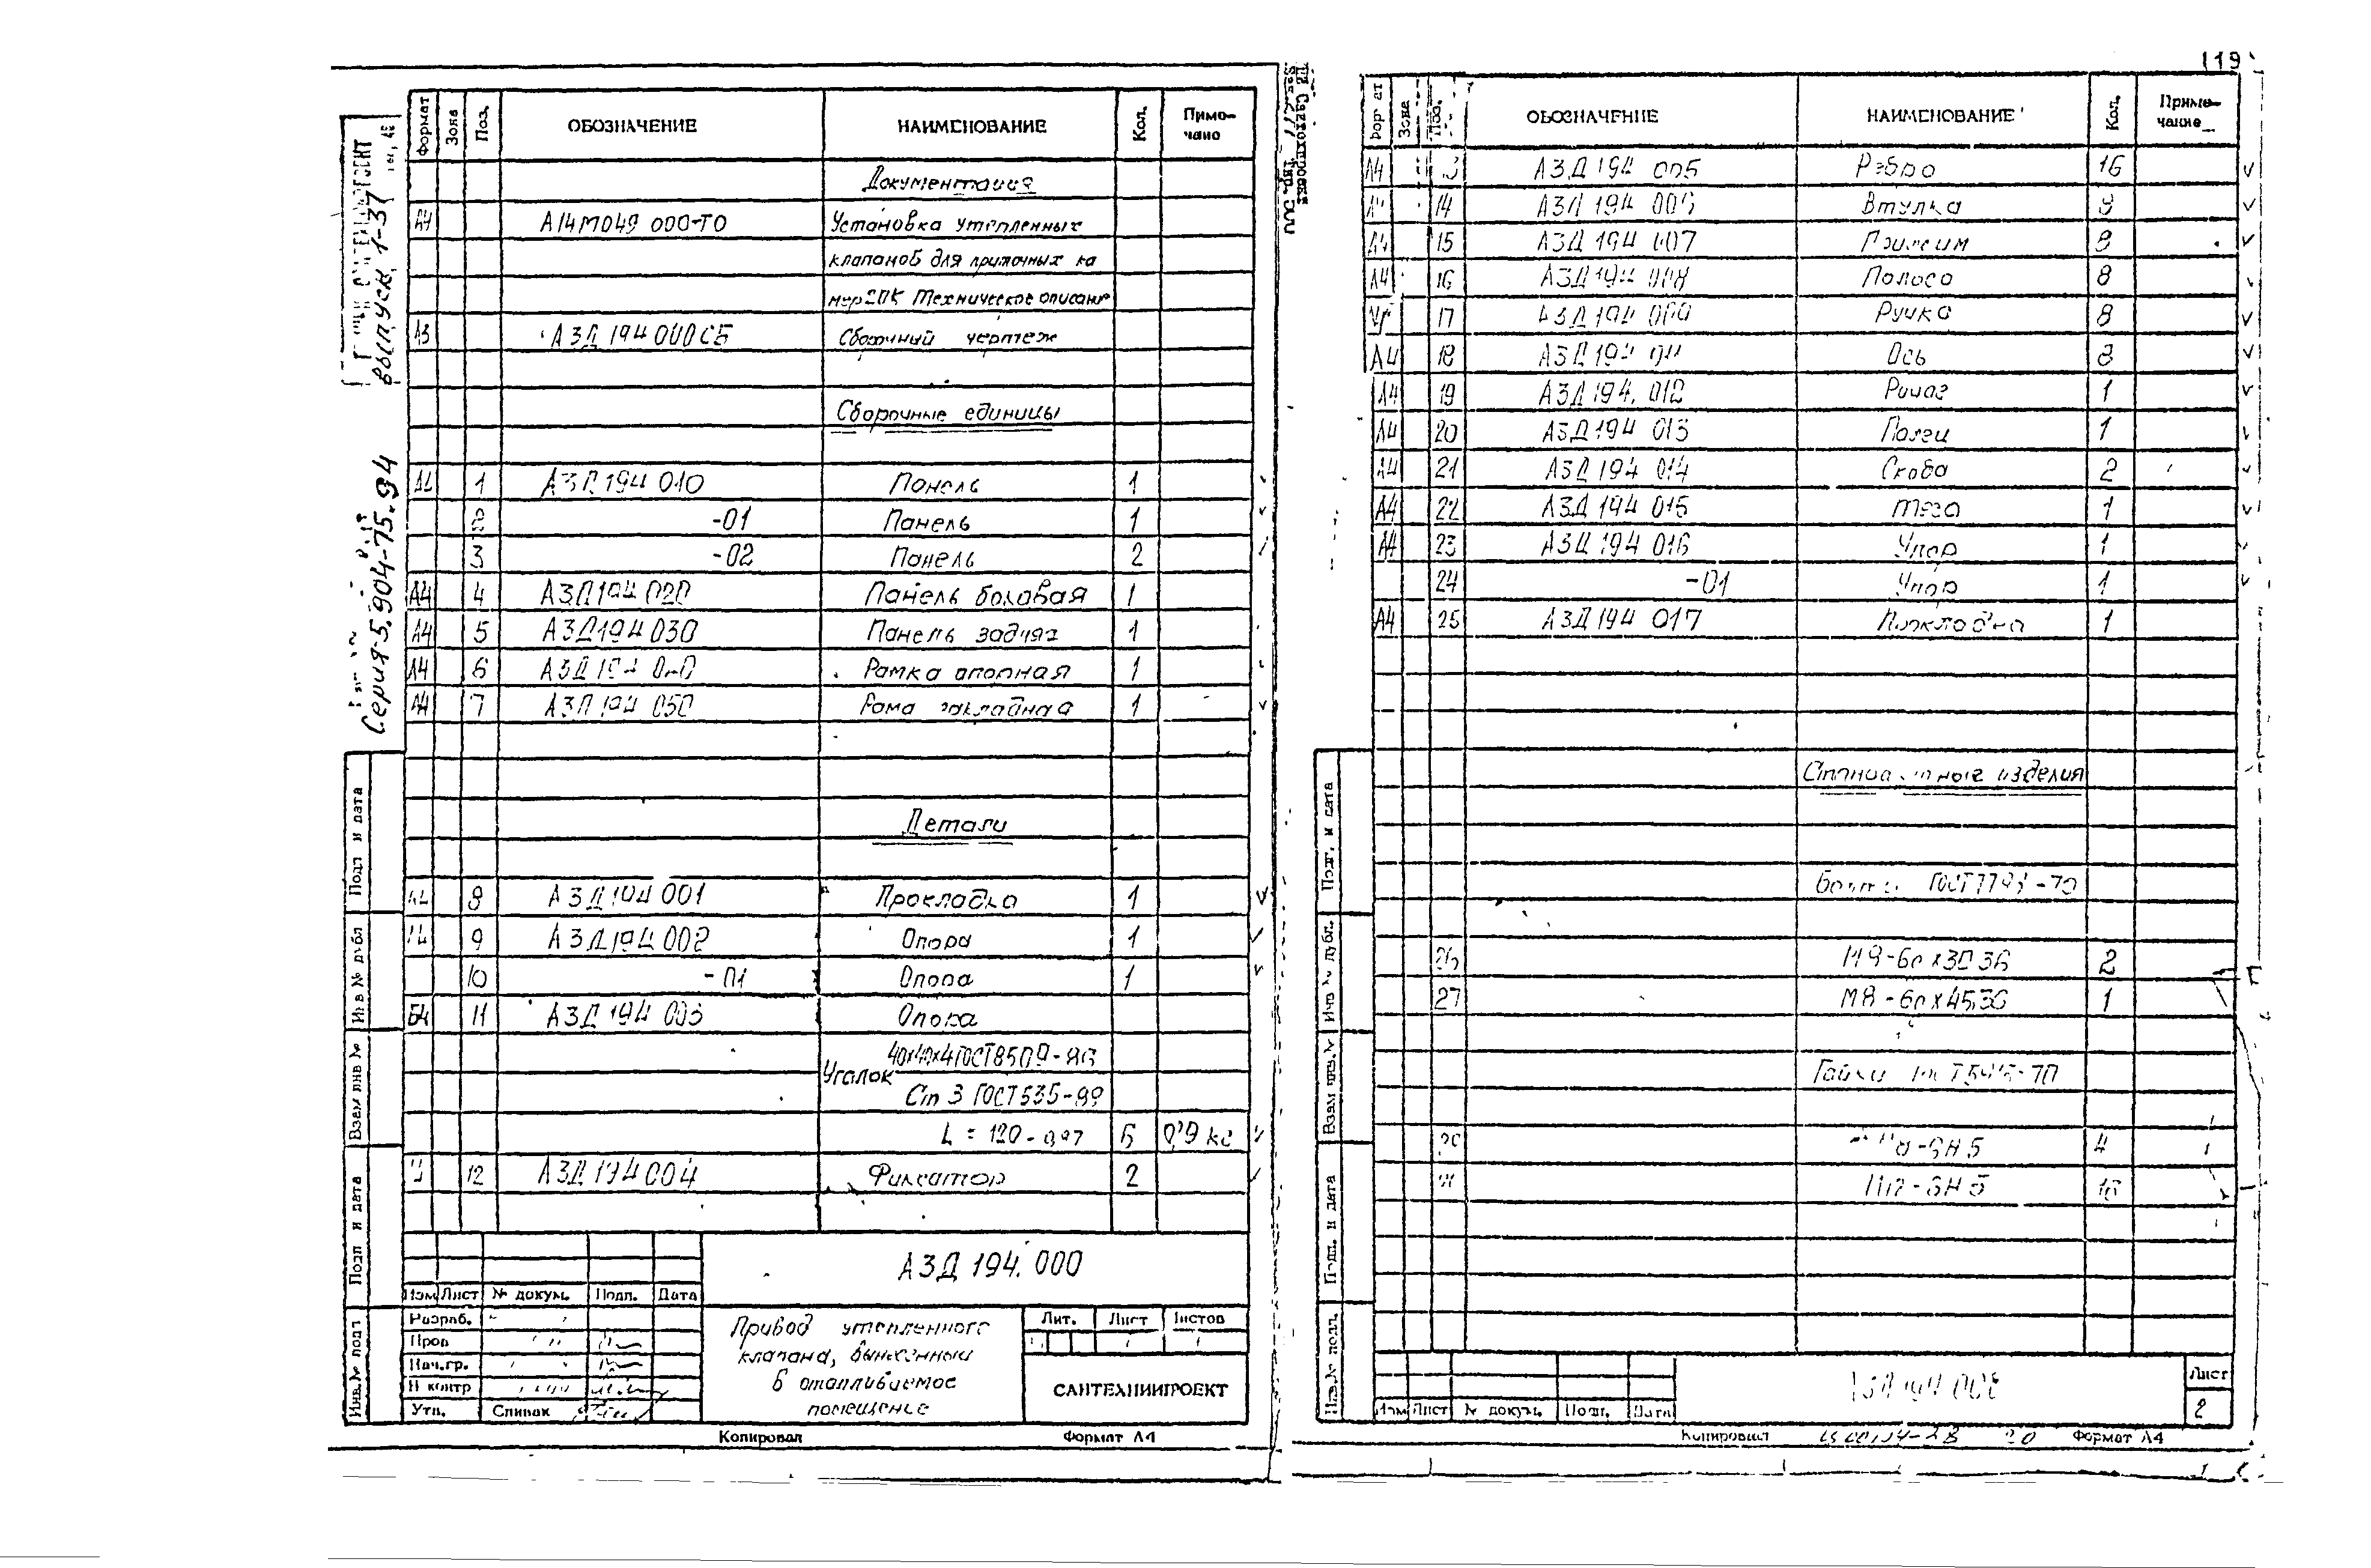 119
Формат Зона Поз. ОБОЗНАЧЕНИЕ НАИМЕНОВАНИЕ Кол. Приме-
чание
Документация
А4 А14М049 000-ТО Установка утепленных
клапанов для приточных ка
мер 2ПК Техническое описание
А3 А3Д 194 000 СБ Сборочный чертеж
Сборочные единицы
1 А3Д 194 010 Панель 1
2 -01 Панель 1
3 -02 Панель 2
А4 4 А3Д 194 020 Панель боковая 1
А4 5 А3Д 194 030 Панель задняя 1
А4 6 Рамка опорная 1
А4 7 А3Д 194 050 Рама закладная 1
Детали
8 А3Д 194 001 Прокладка 1
9 А3Д 194 002 Опора 1
10 -01 Опора 1
Б4 11 А3Д 194 003 Опора
Уголок 40х40х4 ГОСТ 8509-86
Ст 3 ГОСТ 535-
L = 120
12 А3Д 194 004 Фиксатор 2
Серия 5.904-75.94
выпуск 1-37
Подп и дата
Инв № дубл
Взам инв №
Подп и дата
Инв.№ подл
А3Д 194.000
Изм Лист № докум. Подп. Дата
Разраб.
Пров
Нач.гр.
Н контр
Утв. Спивак
Привод утепленного
клапана, вынесенный
в отапливаемое
помещение
Лит. Лист Листов
САНТЕХНИИПРОЕКТ
Копировал Формат А4
Формат Зона Поз. ОБОЗНАЧЕНИЕ НАИМЕНОВАНИЕ Кол. Приме-
чание
А4 А3Д 194 005 Ребро 16
14 А3Д 194 006 Втулка
А4 15 А3Д 194 007 Прижим 8
А4 16 А3Д 194 008 Полоса 8
17 А3Д 194 009 Ручка 8
А4 18 А3Д 194 011 Ось 8
А4 19 А3Д 194. 012 Рычаг 1
А4 20 А3Д 194 013 Палец 1
А4 21 А3Д 194 014 Скоба 2
А4 22 А3Д 194 015 Тяга 1
А4 23 А3Д 194 016 Упор 1
24 -01 Упор 1
А4 25 А3Д 194 017 Прокладка 1
Стандартные изделия
Болты ГОСТ 7798-70
26 М8-6gх30.36 2
27 М8-6gх45.36 1
Гайки ГОСТ 5915-70
4
Подп. и дата
Инв № дубл.
Взам инв.№
Подп. и дата
Инв.№ подл.
Изм Лист № докум. Подп. Дата
Лист
2
Копировал Формат А4